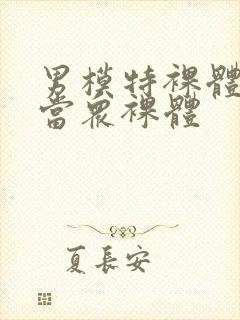 男模特裸體
當眾裸體
夏長安